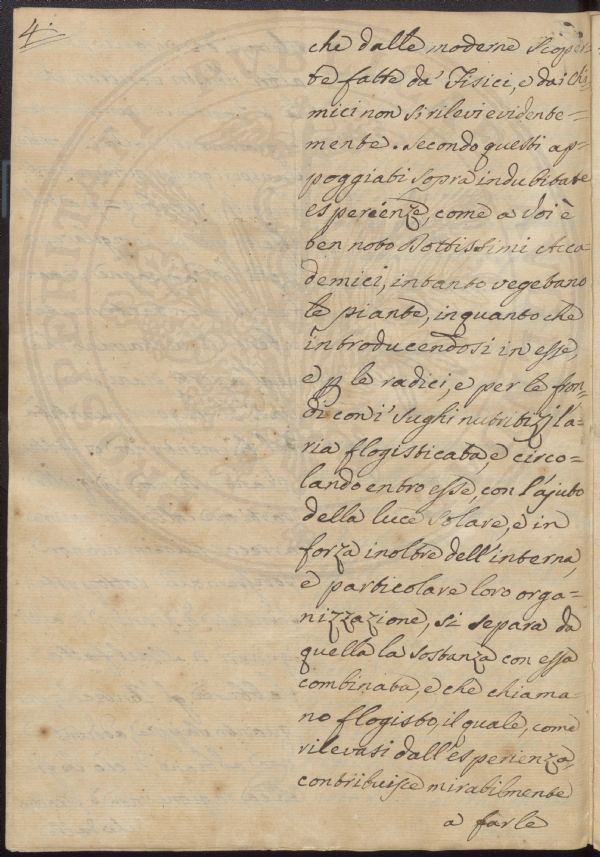 4.
che dalle moderne Scoper-
te fatte da' Fisici, e dai Chi-
mici non si rilevi evidente=
mente. Secondo questi ap=
poggiati sopra indubitate
esperienze, come a Voi è
ben noto Dottissimi Acca=
demici, intanto vegetano
le piante, inquanto che
introducendosi in esse,
e p le radici, e per le fron=
di con i sughi nutritizj l'a=
ria flogisticata, e circo=
lando entro esse, con l'ajuto
della luce Solare, e in
forza inoltre dell'interna,
e particolare loro orga=
nizzazione, si separa da
quella la sostanza con essa
combinata, e che chiama=
no flogisto, il quale, come
rilevasi dall'esperienza,
contribuisce mirabilmente
a farle